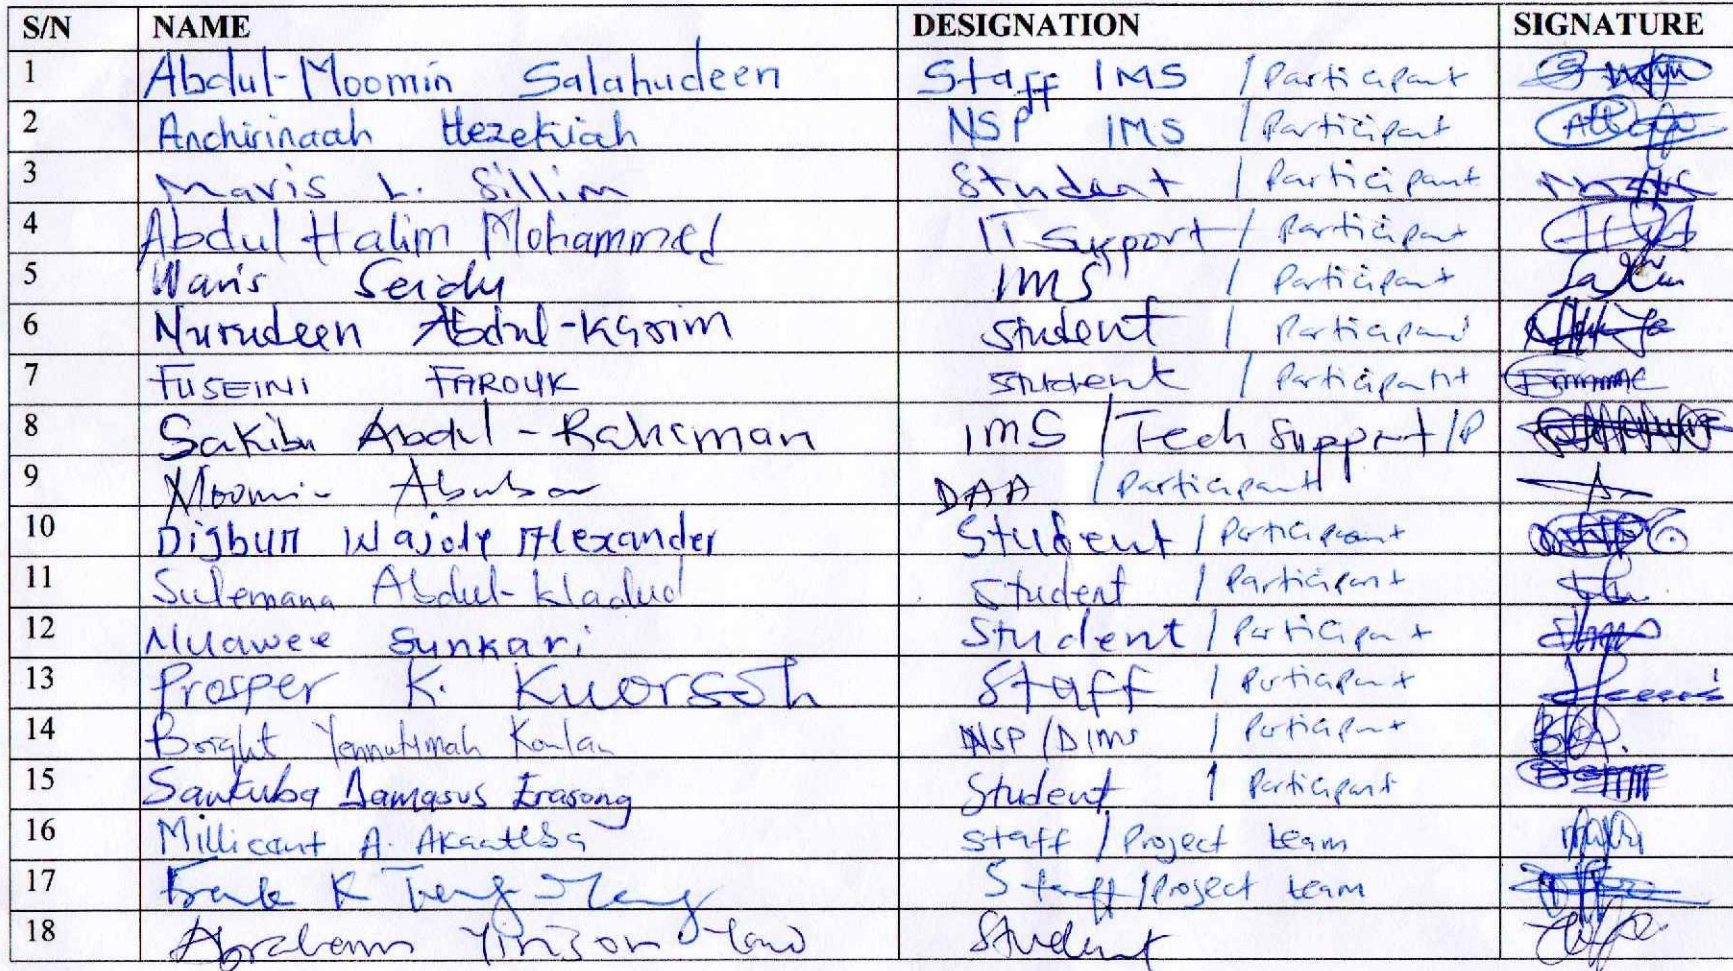 S/N NAME DESIGNATION SIGNATURE
1 Abdul-Moomin Salahudeen Staff IMS / Participant
2 Anchirinaah Hezekiah NSP IMS / Participant
3 Mavis L. Sillim Student / Participant
4 Abdul Halim Mohammed IT Support / Participant
5 Waris Seidu IMS / Participant
6 Nurudeen Abdul-Karim Student / Participant
7 FUSEINI FAROUK Student / Participant
8 Sakibu Abdul-Rahaman IMS / Tech Support / P
9 Moomin DAA / Participant
10 Alexander Student / Participant
11 Sulemana Student / Participant
12 Muawee Sunkari Student / Participant
13 Prosper K. Kuorsoh Staff / Participant
14 Bright NSP / DIMS / Participant
15 Damasus Student / Participant
16 Millicent A. Akaateba Staff / Project team
17 K Staff / Project team
18 Student